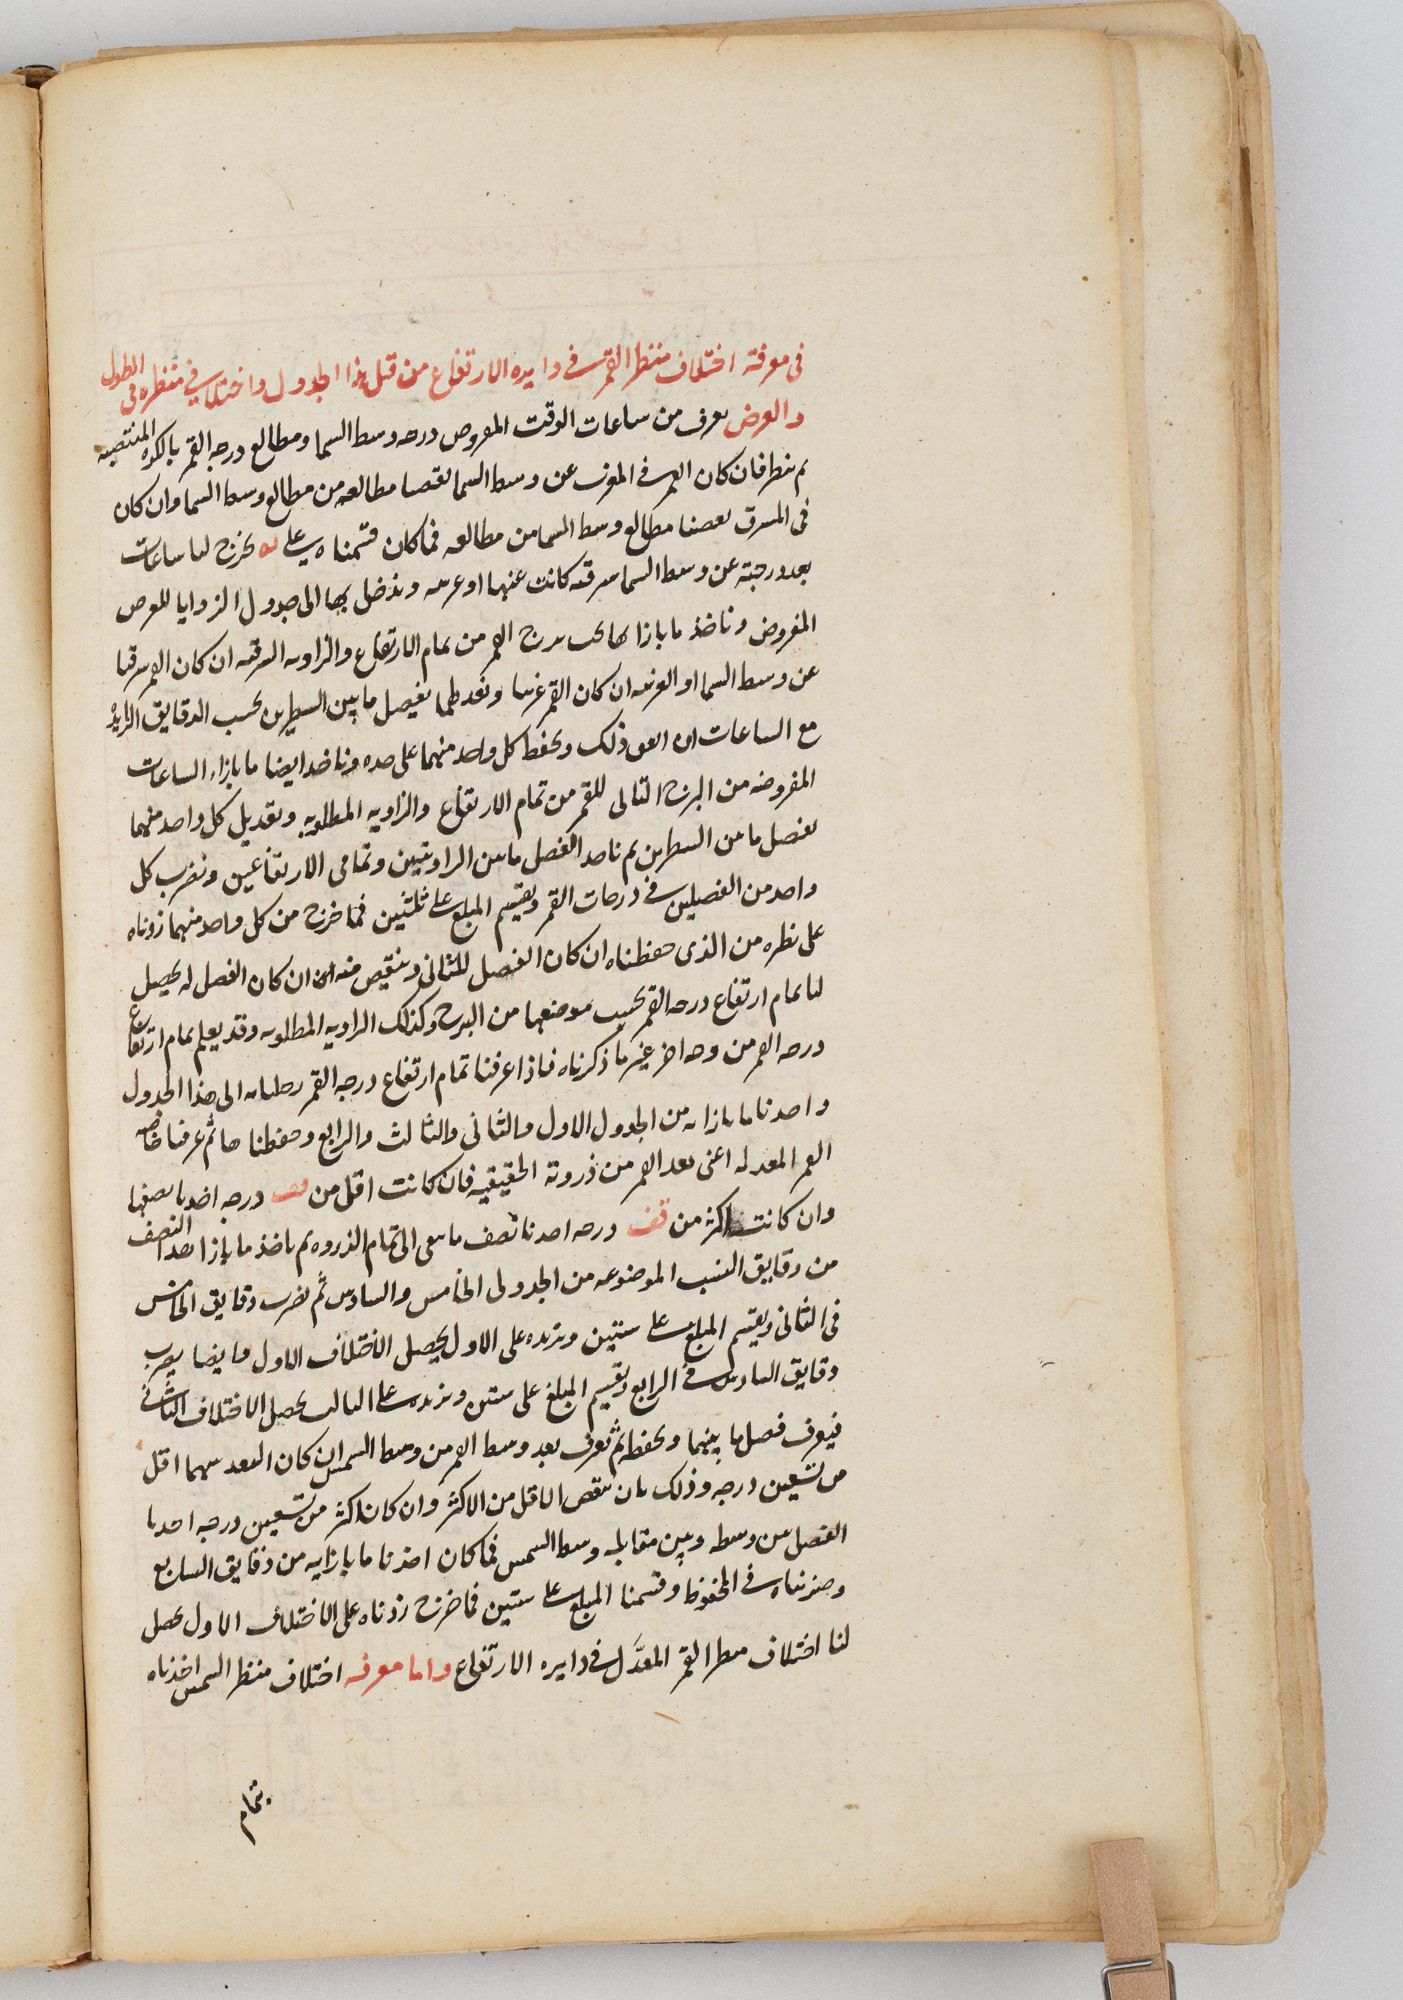 فى معرفة اختلاف منظر القمر فى دايره الارتفاع من قبل هذا الجدول واختلافى منظره فى الطول
والعرض يعرف من ساعات الوقت المفروض درجه وسط السما ومطالع درجه القمر بالكره المنتصبه
ثم ينظر فان كان القمر فى المغرب عن وسط السما نقصنا مطالعه من مطالع وسط السما وان كان
فى المشرق نقصنا مطالع وسط السما من مطالعه فما كان قسمناه على يه يخرج لنا ساعات
بعد درجته عن وسط السما شرقيه كانت عنها او غربيه وندخل بها الى جدول الزوايا للعرض
المفروض وناخذ ما بازائها تحت برج القمر من تمام الارتفاع والزاويه الشرقيه ان كان القمر شرقيا
عن وسط السما او الغربيه ان كان القمر غربيا ونعدلهما بفضل ما بين السطرين بحسب الدقايق الزايده
مع الساعات ان اتفق ذلك ونحفظ كل واحد منهما على حده وناخذ ايضا ما بازاء الساعات
المفروضه من البرج التالى للقمر من تمام الارتفاع والزاويه المطلوبه وتعديل كل واحد منهما
بفضل ما بين السطرين ثم ناخذ الفضل ما بين الزاويتين وتمامى الارتفاعين ونضرب كل
واحد من الفضلين فى درجات القمر ونقسم المبلغ على ثلثين فما خرج من كل واحد منهما زدناه
على نظيره من الذى حفظناه ان كان الفضل للثانى وننقص منه ان كان الفضل له يحصل
لنا تمام ارتفاع درجه القمر بحسب موضعها من البرج وكذلك الزاويه المطلوبه وقد يعلم تمام ارتفاع
درجه القمر من وجه اخر غير ما ذكرناه فاذا عرفنا تمام ارتفاع درجه القمر دخلنا به الى هذا الجدول
واخذنا ما بازائه من الجدول الاول والثانى والثالث والرابع وحفظناها ثم عرفنا خاصه
القمر المعدله اعنى بعد القمر من ذروته الحقيقيه فان كانت اقل من قف درجه اخذنا نصفها
وان كانت اكثر من قف درجه اخذنا نصف ما بقى الى تمام الذروه ثم ناخذ ما بازا هذا النصف
من دقايق النسب الموضوعه من الجدولى الخامس والسادس ثم نضرب دقايق الخامس
فى الثانى ونقسم المبلغ على ستين ونزيده على الاول يحصل الاختلاف الاول وايضا يضرب
دقايق السادس فى الرابع ونقسم المبلغ على ستين ونزيده على الثالث يحصل الاختلاف الثانى
فيعرف فضل ما بينهما ونحفظه ثم نعرف بعد وسط القمر من وسط الشمس ان كان البعد بينهما اقل
من تسعين درجه وذلك بان ننقص الاقل من الاكثر وان كان اكثر من تسعين درجه اخذنا
الفضل بين وسطه وبين مقابله وسط الشمس فما كان اخذنا ما بازايه من دقايق السابع
وضربناه فى المحفوظ وقسمنا المبلغ على ستين فما خرج زدناه على الاختلاف الاول يحصل
لنا اختلاف منظر القمر المعدَّل فى دايره الارتفاع واما معرفه اختلاف منظر الشمس اخذناه
بتمام